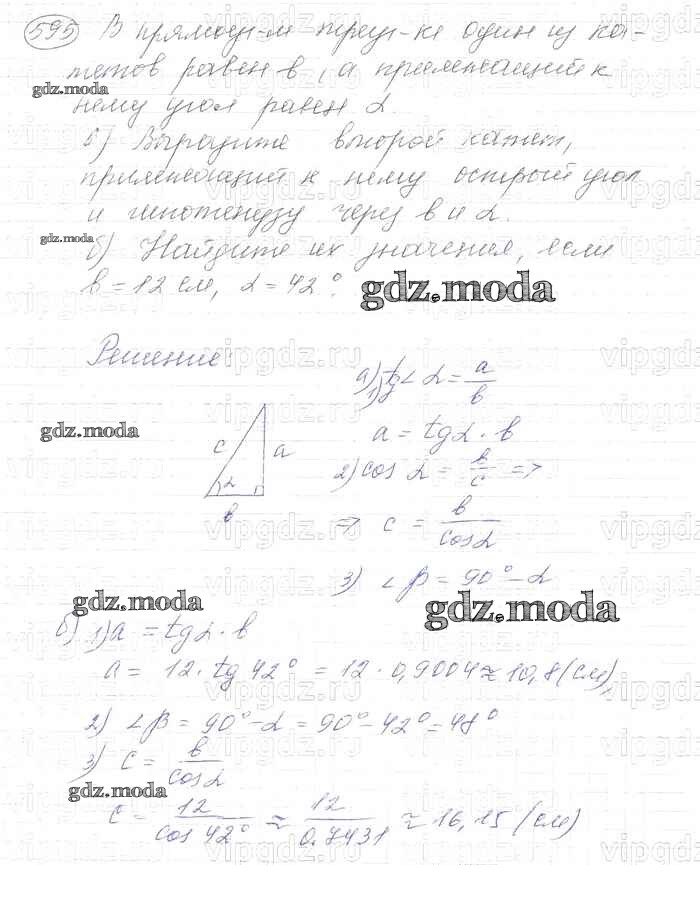 595 В прямоуг-м треуг-ке один из ка-
тетов равен b, а прилежащий к
gdz.moda
нему угол равен α.
б) Выразите второй катет,
прилежащий к нему острый угол
и гипотенузу через b и α.
gdz.moda
б) Найдите их значения, если
b = 12 см, α = 42°.
gdz.moda
Решение
а) 1) tg ∠ α = a/b
gdz.moda
c a
α
b
a = tg α · b
2) cos α = b/c =>
=> c = b/cos α
3) ∠ β = 90° - α
gdz.moda
gdz.moda
б) 1) a = tg α · b
a = 12 · tg 42° = 12 · 0,9004 ≈ 10,8 (см),
2) ∠ β = 90° - α = 90° - 42° = 48°
3) c = b/cos α
gdz.moda
c = 12/cos 42° ≈ 12/0.7431 ≈ 16,15 (см)
vipgdz.ru